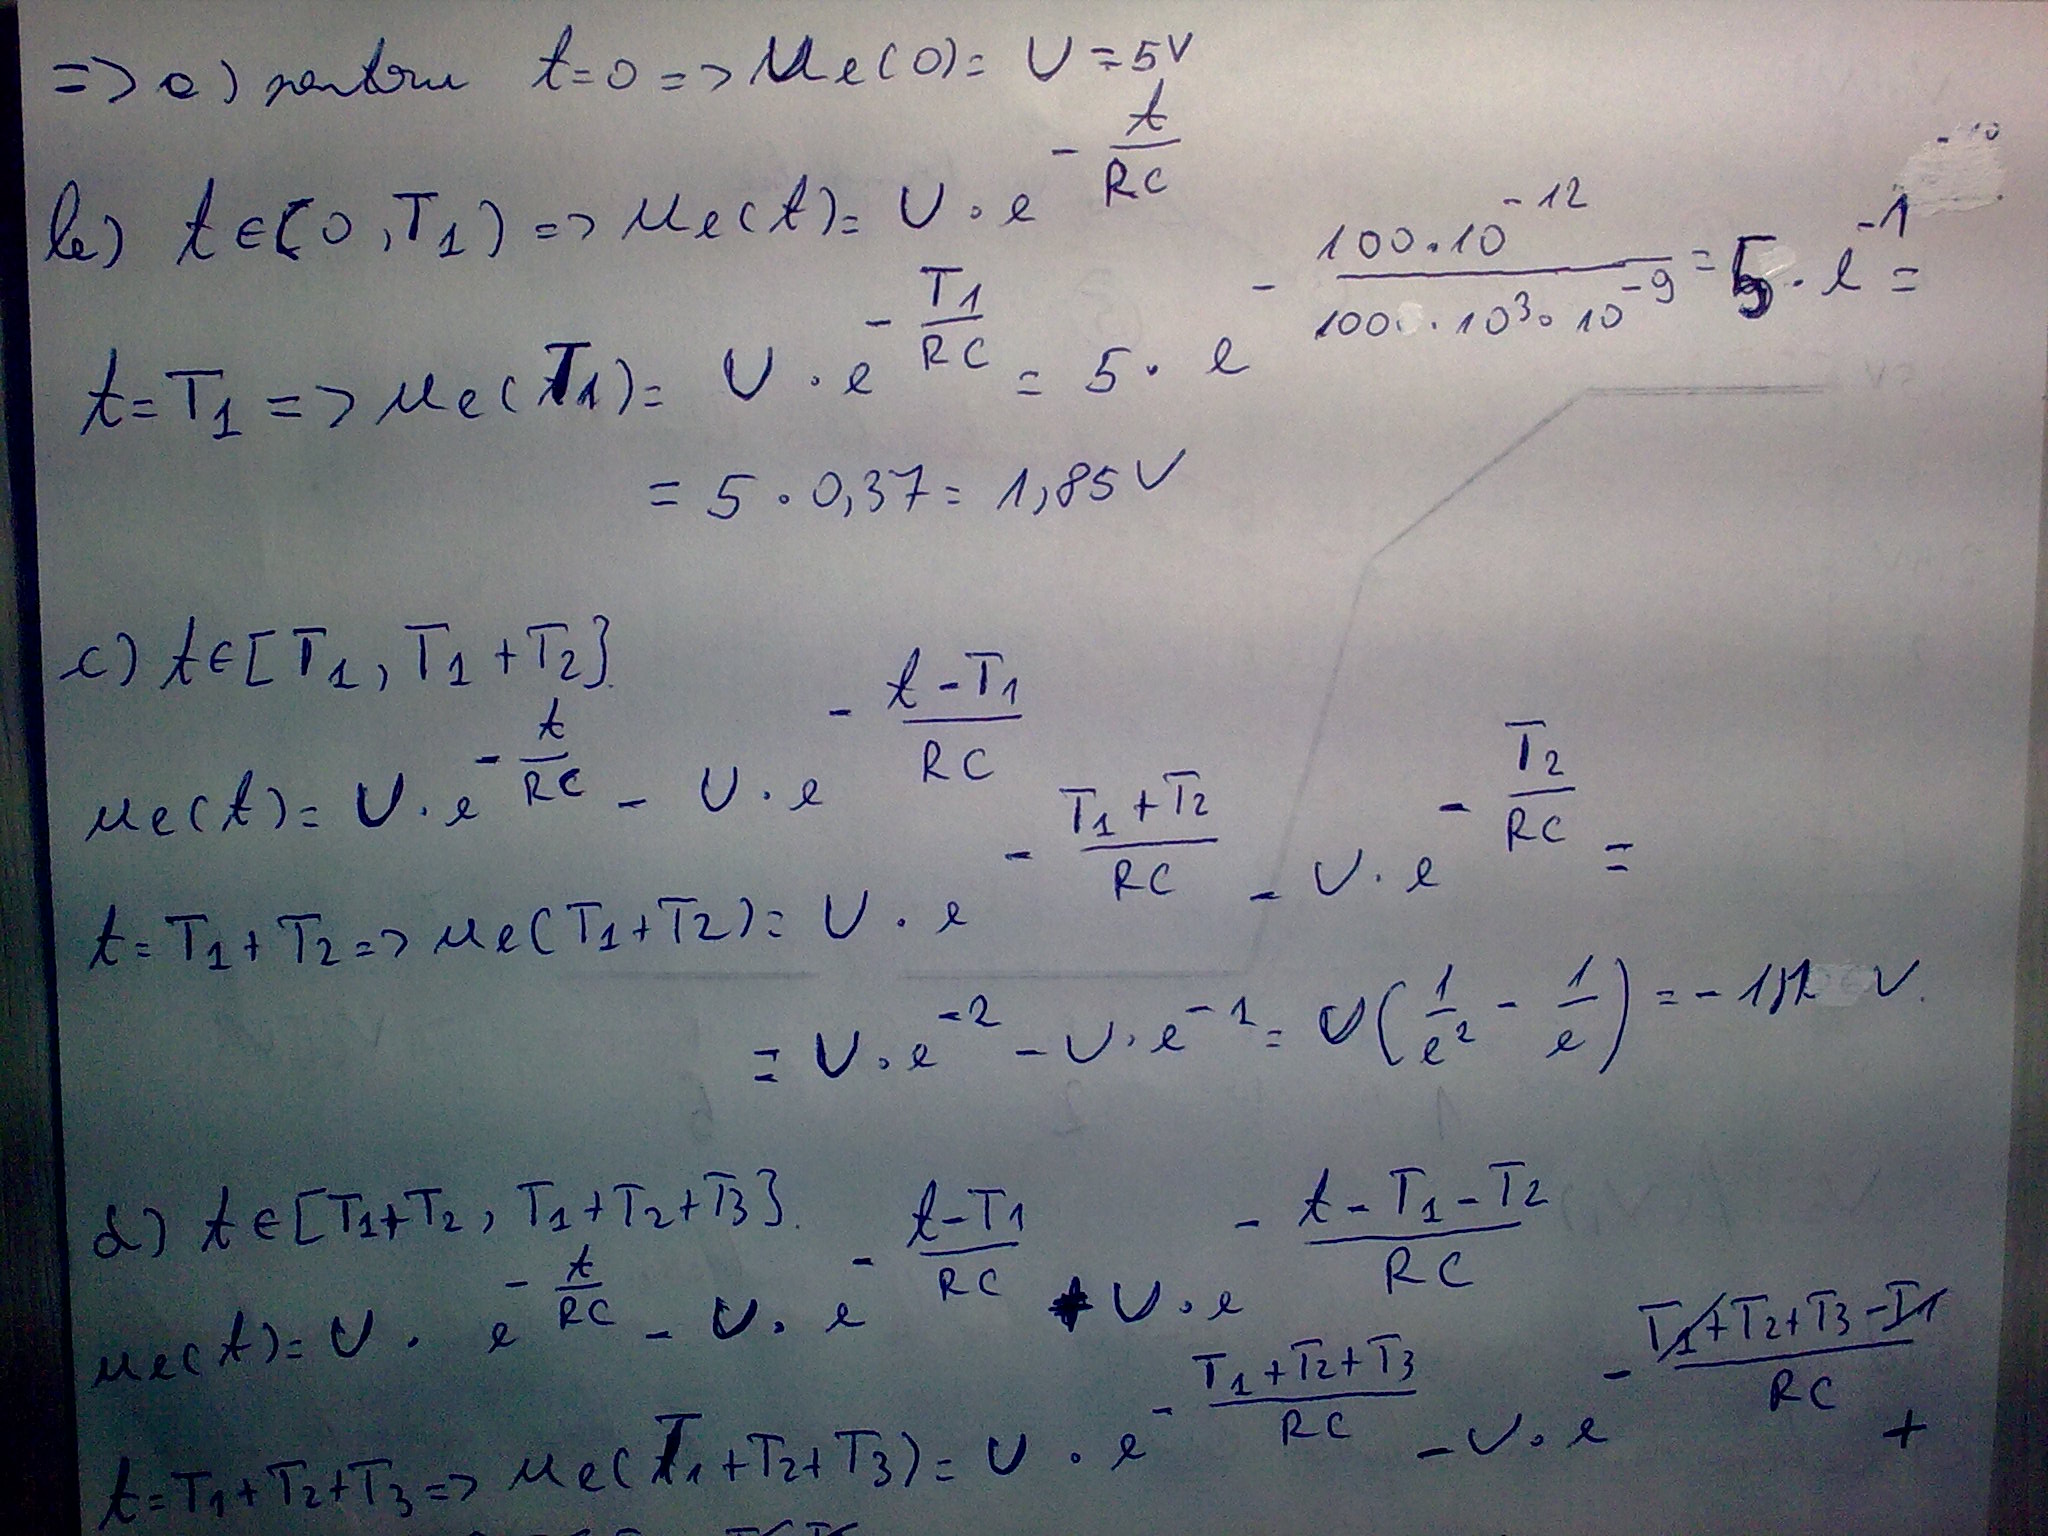 => a) pentru t=0 => ue(0)= U = 5V
b) t∈(0,T1) => ue(t)= U·e^(-t/RC)
t=T1 => ue(T1)= U·e^(-T1/RC) = 5·e^(-(100·10^-12)/(100·10^3·10^-9)) = 5·e^-1 =
= 5·0,37= 1,85V
c) t∈[T1,T1+T2].
ue(t)= U·e^(-t/RC) - U·e^(-(t-T1)/RC)
t=T1+T2 => ue(T1+T2)= U·e^(-(T1+T2)/RC) - U·e^(-T2/RC) =
= U·e^-2 - U·e^-1 = U(1/e^2 - 1/e) = - V.
d) t∈[T1+T2, T1+T2+T3].
ue(t)= U·e^(-t/RC) - U·e^(-(t-T1)/RC) + U·e^(-(t-T1-T2)/RC)
t=T1+T2+T3 => ue(T1+T2+T3)= U·e^(-(T1+T2+T3)/RC) - U·e^(-(T1+T2+T3-T1)/RC) +